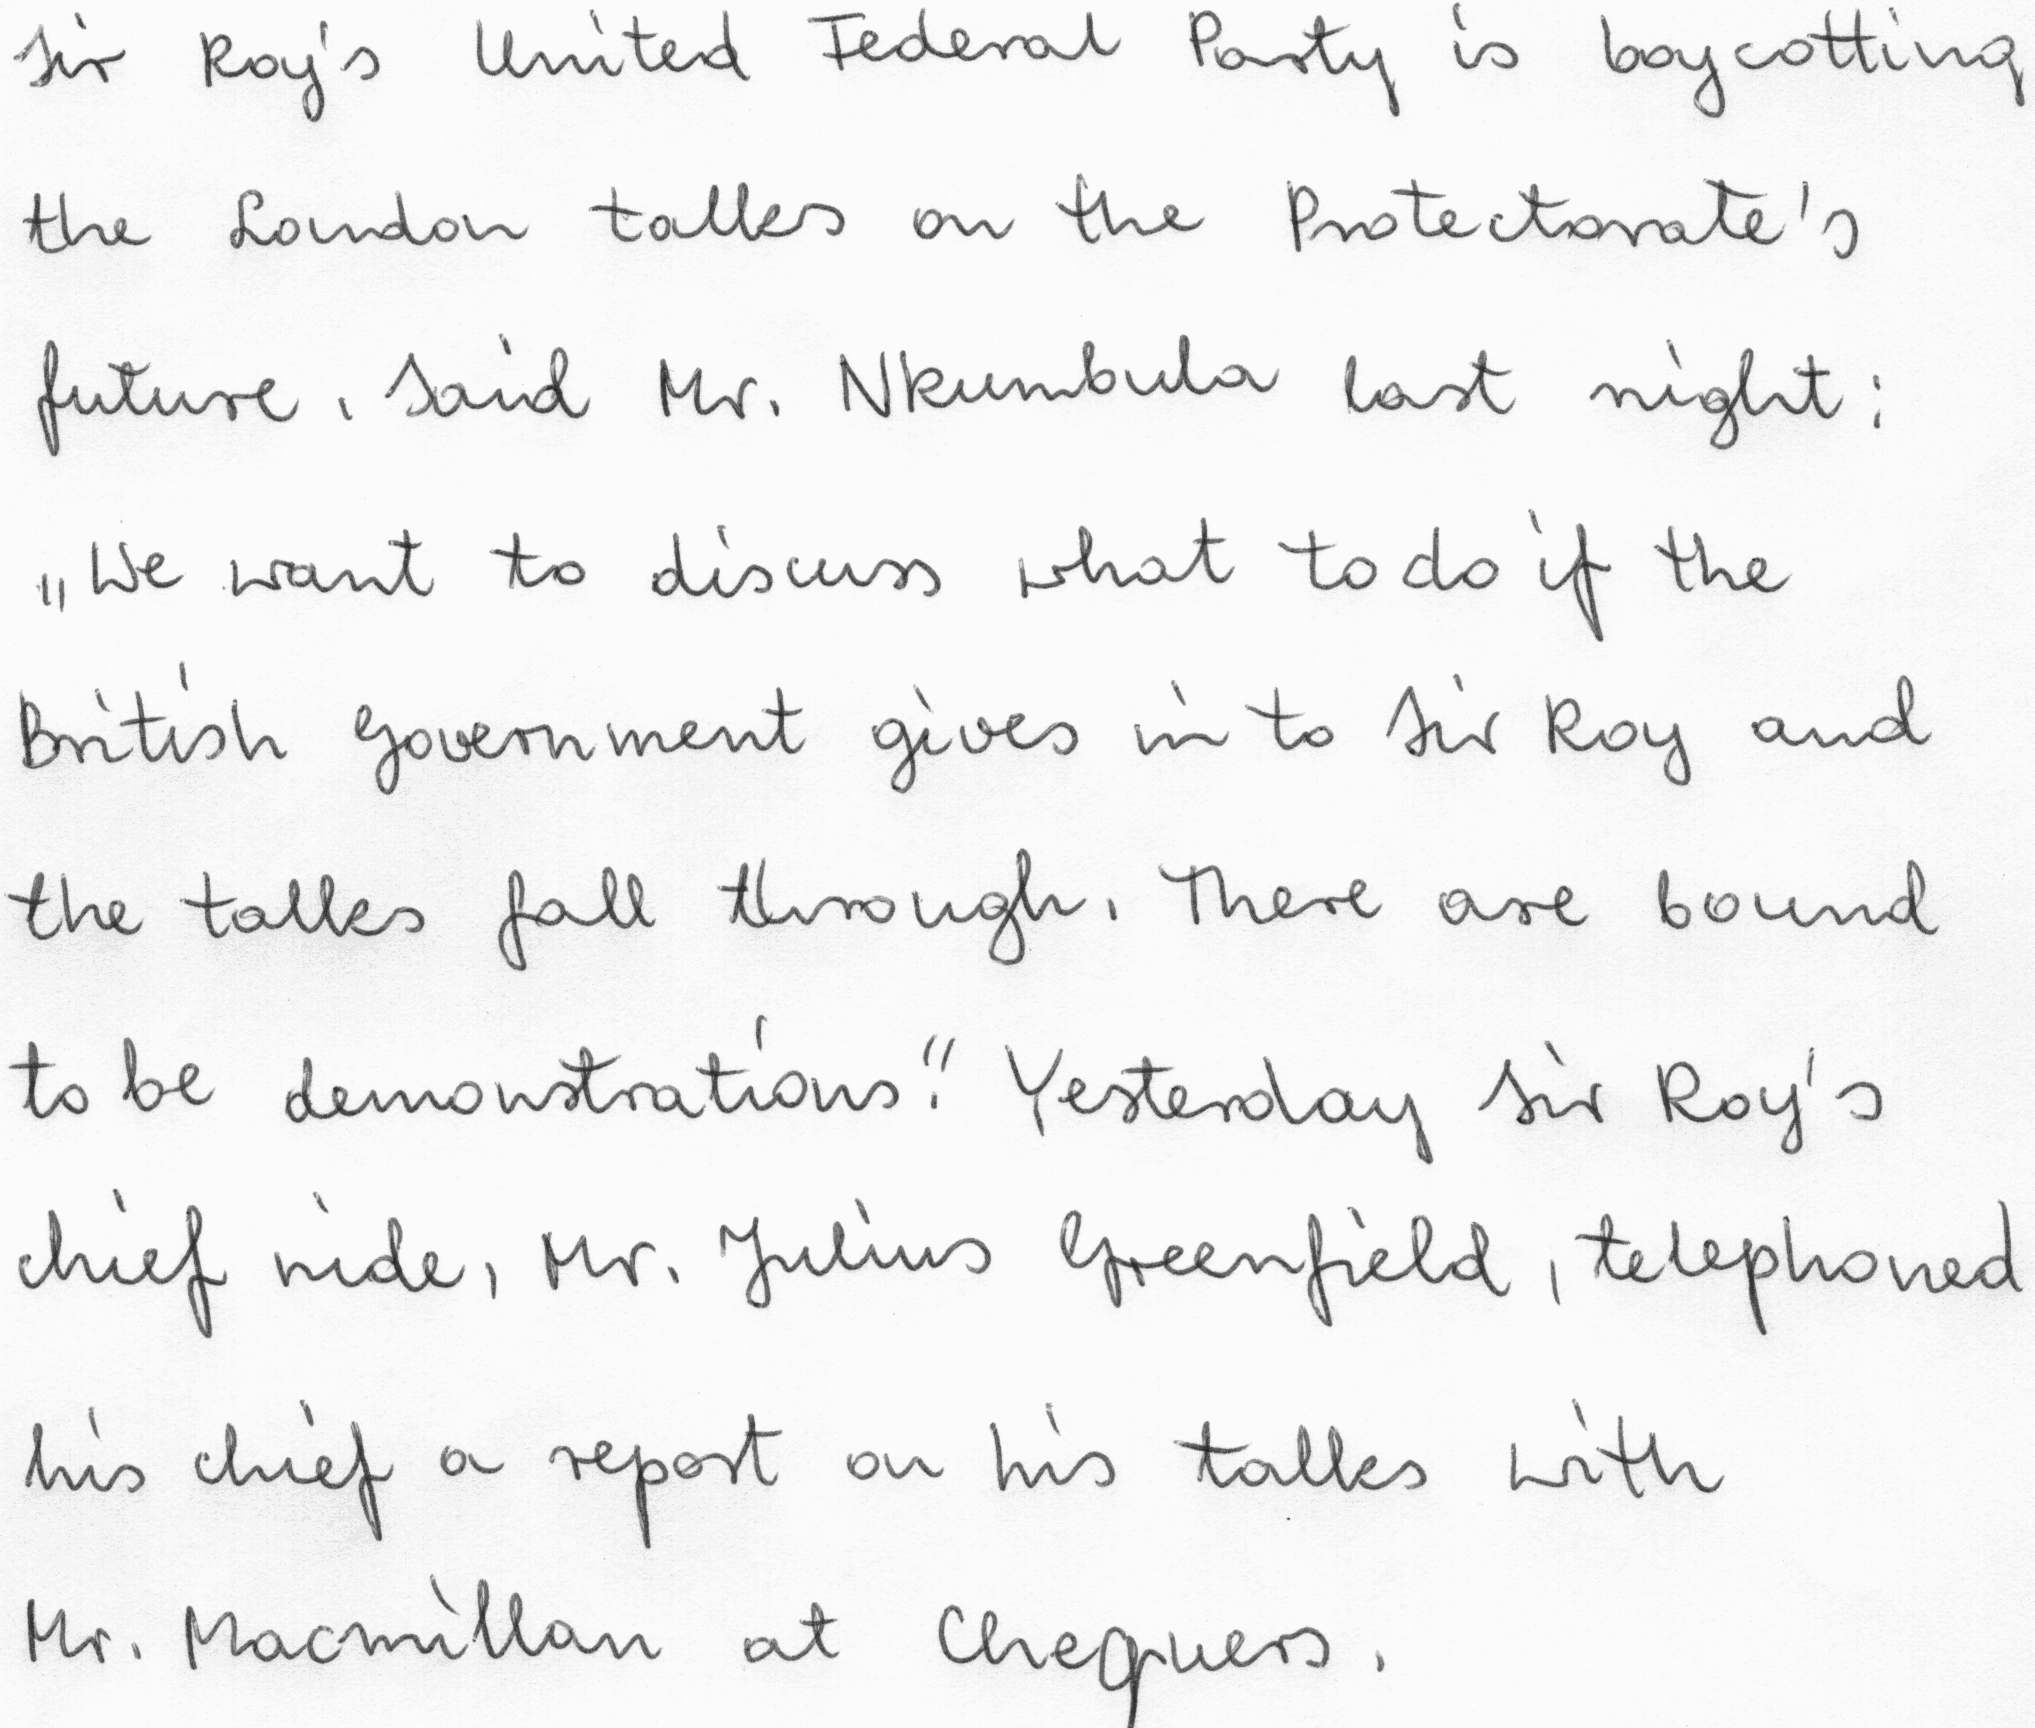 Sir Roy's United Federal Party is boycotting
the London talks on the Protectorate's
future. Said Mr. Nkumbula last night:
„We want to discuss what to do if the
British Government gives in to Sir Roy and
the talks fall through. There are bound
to be demonstrations." Yesterday Sir Roy's
chief aide, Mr. Julius Greenfield, telephoned
his chief a report on his talks with
Mr. Macmillan at Chequers.